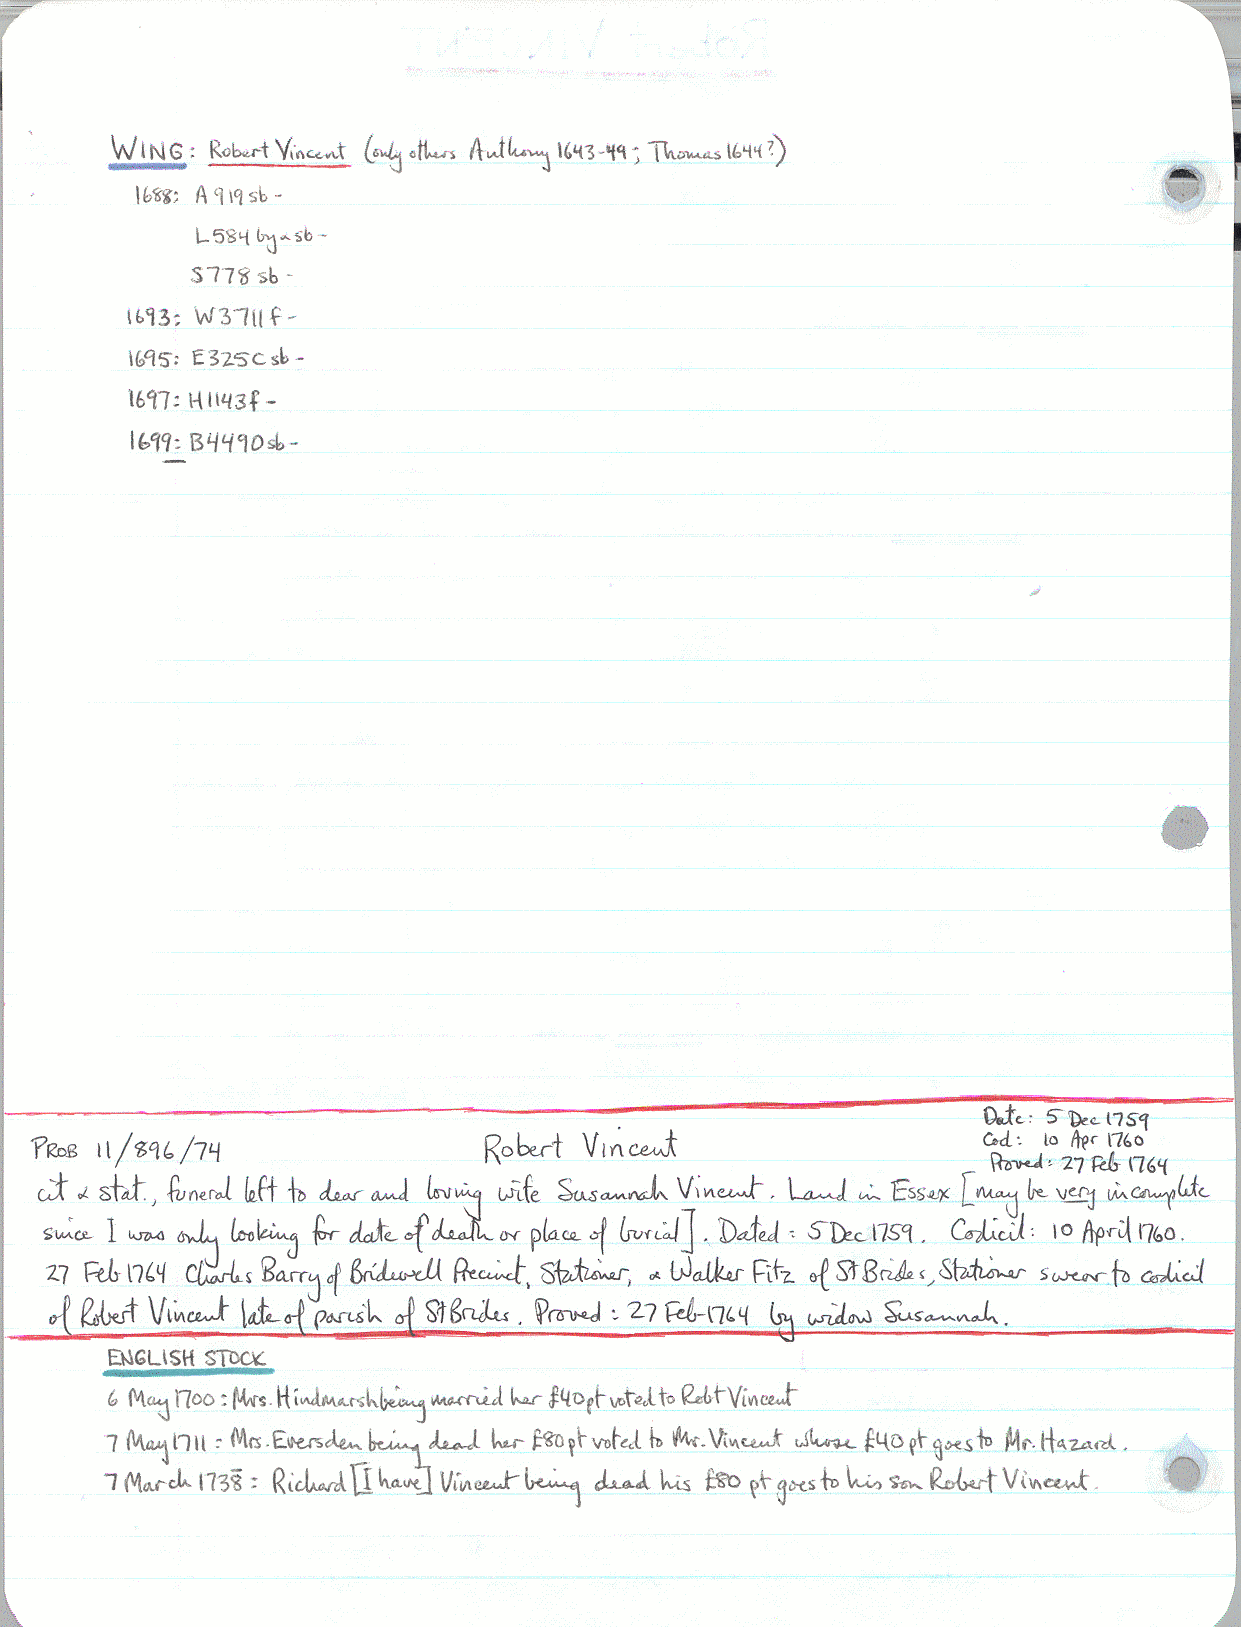 WING: Robert Vincent (only others Anthony 1643-49; Thomas 1644?)
1688: A919 sb -
L584 by & sb -
S778 sb -
1693: W3711 f -
1695: E325C sb -
1697: H1143 f -
1699: B4490 sb -
Date: 5 Dec 1759
PROB 11/896/74 Robert Vincent Cod: 10 Apr 1760
Proved: 27 Feb 1764
cit & stat., funeral left to dear and loving wife Susannah Vincent. Land in Essex [may be very incomplete
since I was only looking for date of death or place of burial]. Dated: 5 Dec 1759. Codicil: 10 April 1760.
27 Feb 1764 Charles Barry of Bridewell Precinct, Stationer, & Walker Fitz of St Brides, Stationer swear to codicil
of Robert Vincent late of parish of St Brides. Proved: 27 Feb 1764 by widow Susannah.
ENGLISH STOCK
6 May 1700: Mrs. Hindmarsh being married her £40 pt voted to Robt Vincent
7 May 1711: Mrs. Eversden being dead her £80 pt voted to Mr. Vincent whose £40 pt goes to Mr. Hazard.
7 March 1738: Richard [I have] Vincent being dead his £80 pt goes to his son Robert Vincent.